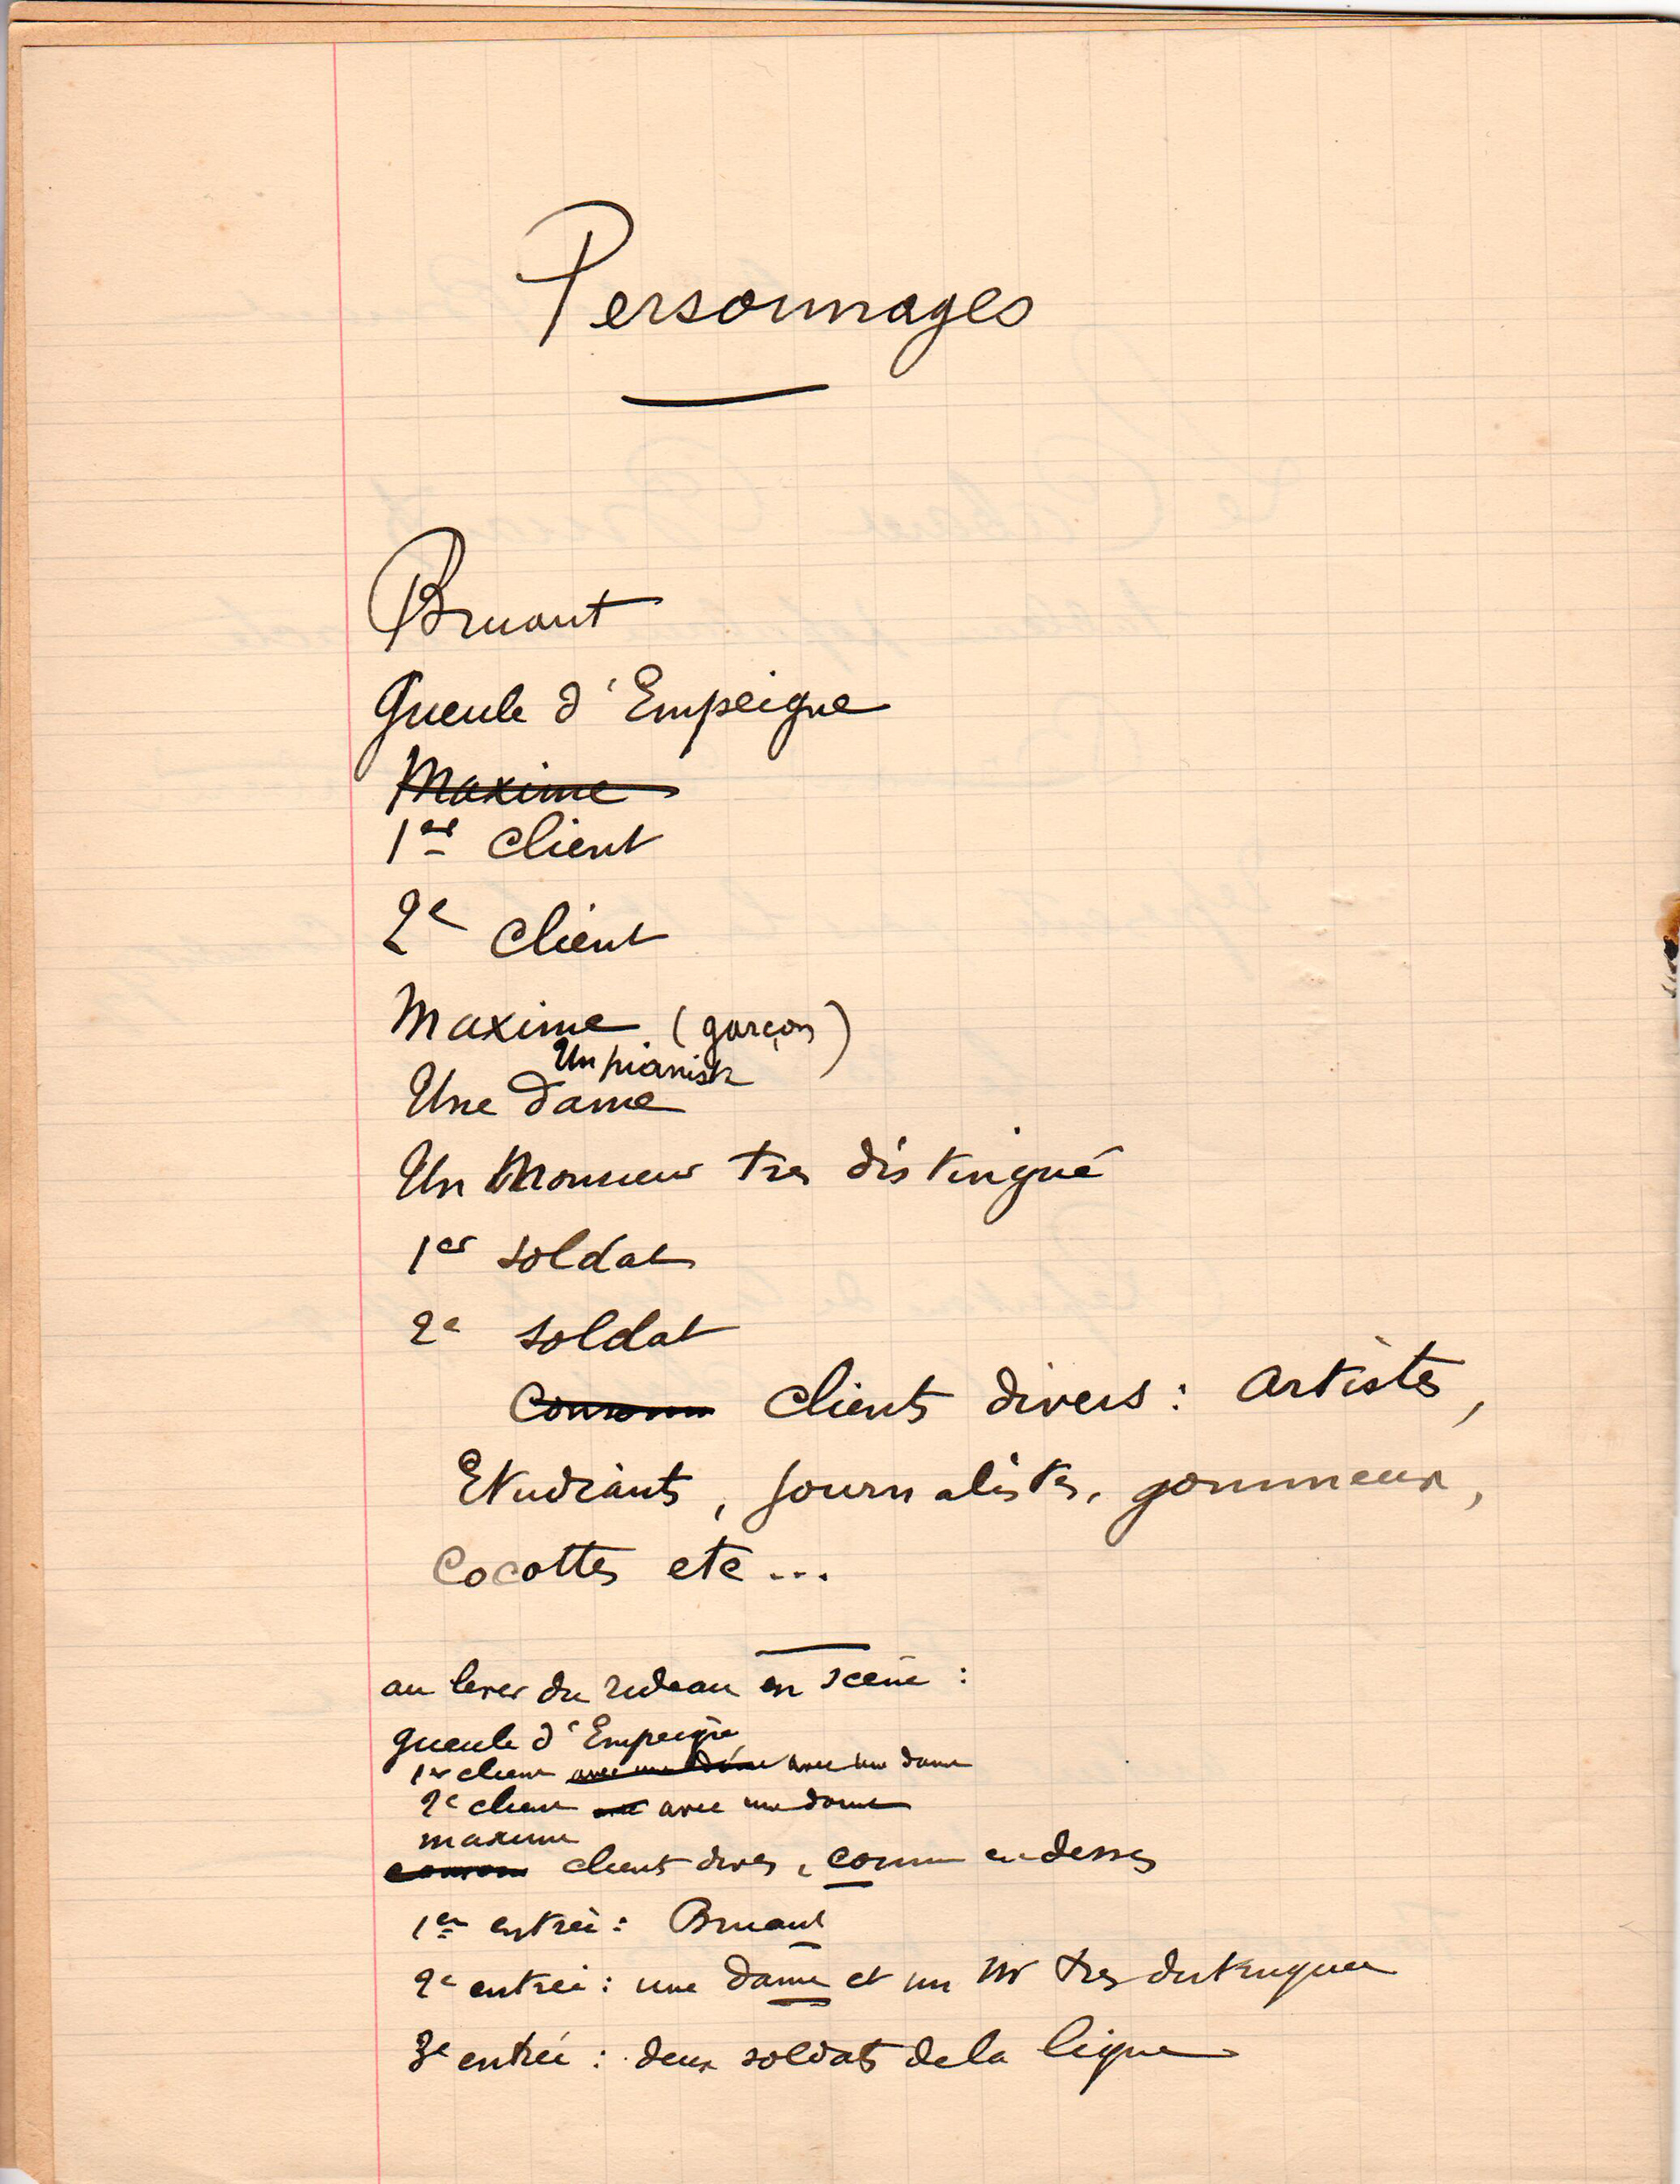 Personnages
Bruant
Gueule d'Empeigne
Maxime
1er client
2e client
Maxime (garçon)
Un pianiste
Une dame
Un Monsieur tres distingué
1er soldat
2e soldat
clients divers : artistes,
Etudiants, journalistes, gommeux,
Cocottes etc...
au lever du rideau en scène :
Gueule d'Empeigne
1er client avec une dame avec une dame
2e client avec une dame
maxime
clients divers, comme en dessus
1er entrée : Bruant
2e entrée : une dame et un Mr tres distingué
3e entrée : deux soldats de la ligne